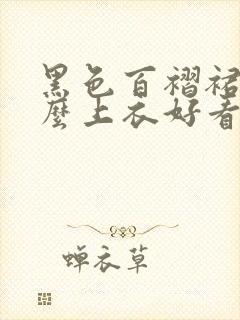 黑色百褶裙
麼上衣好看
蝉衣草